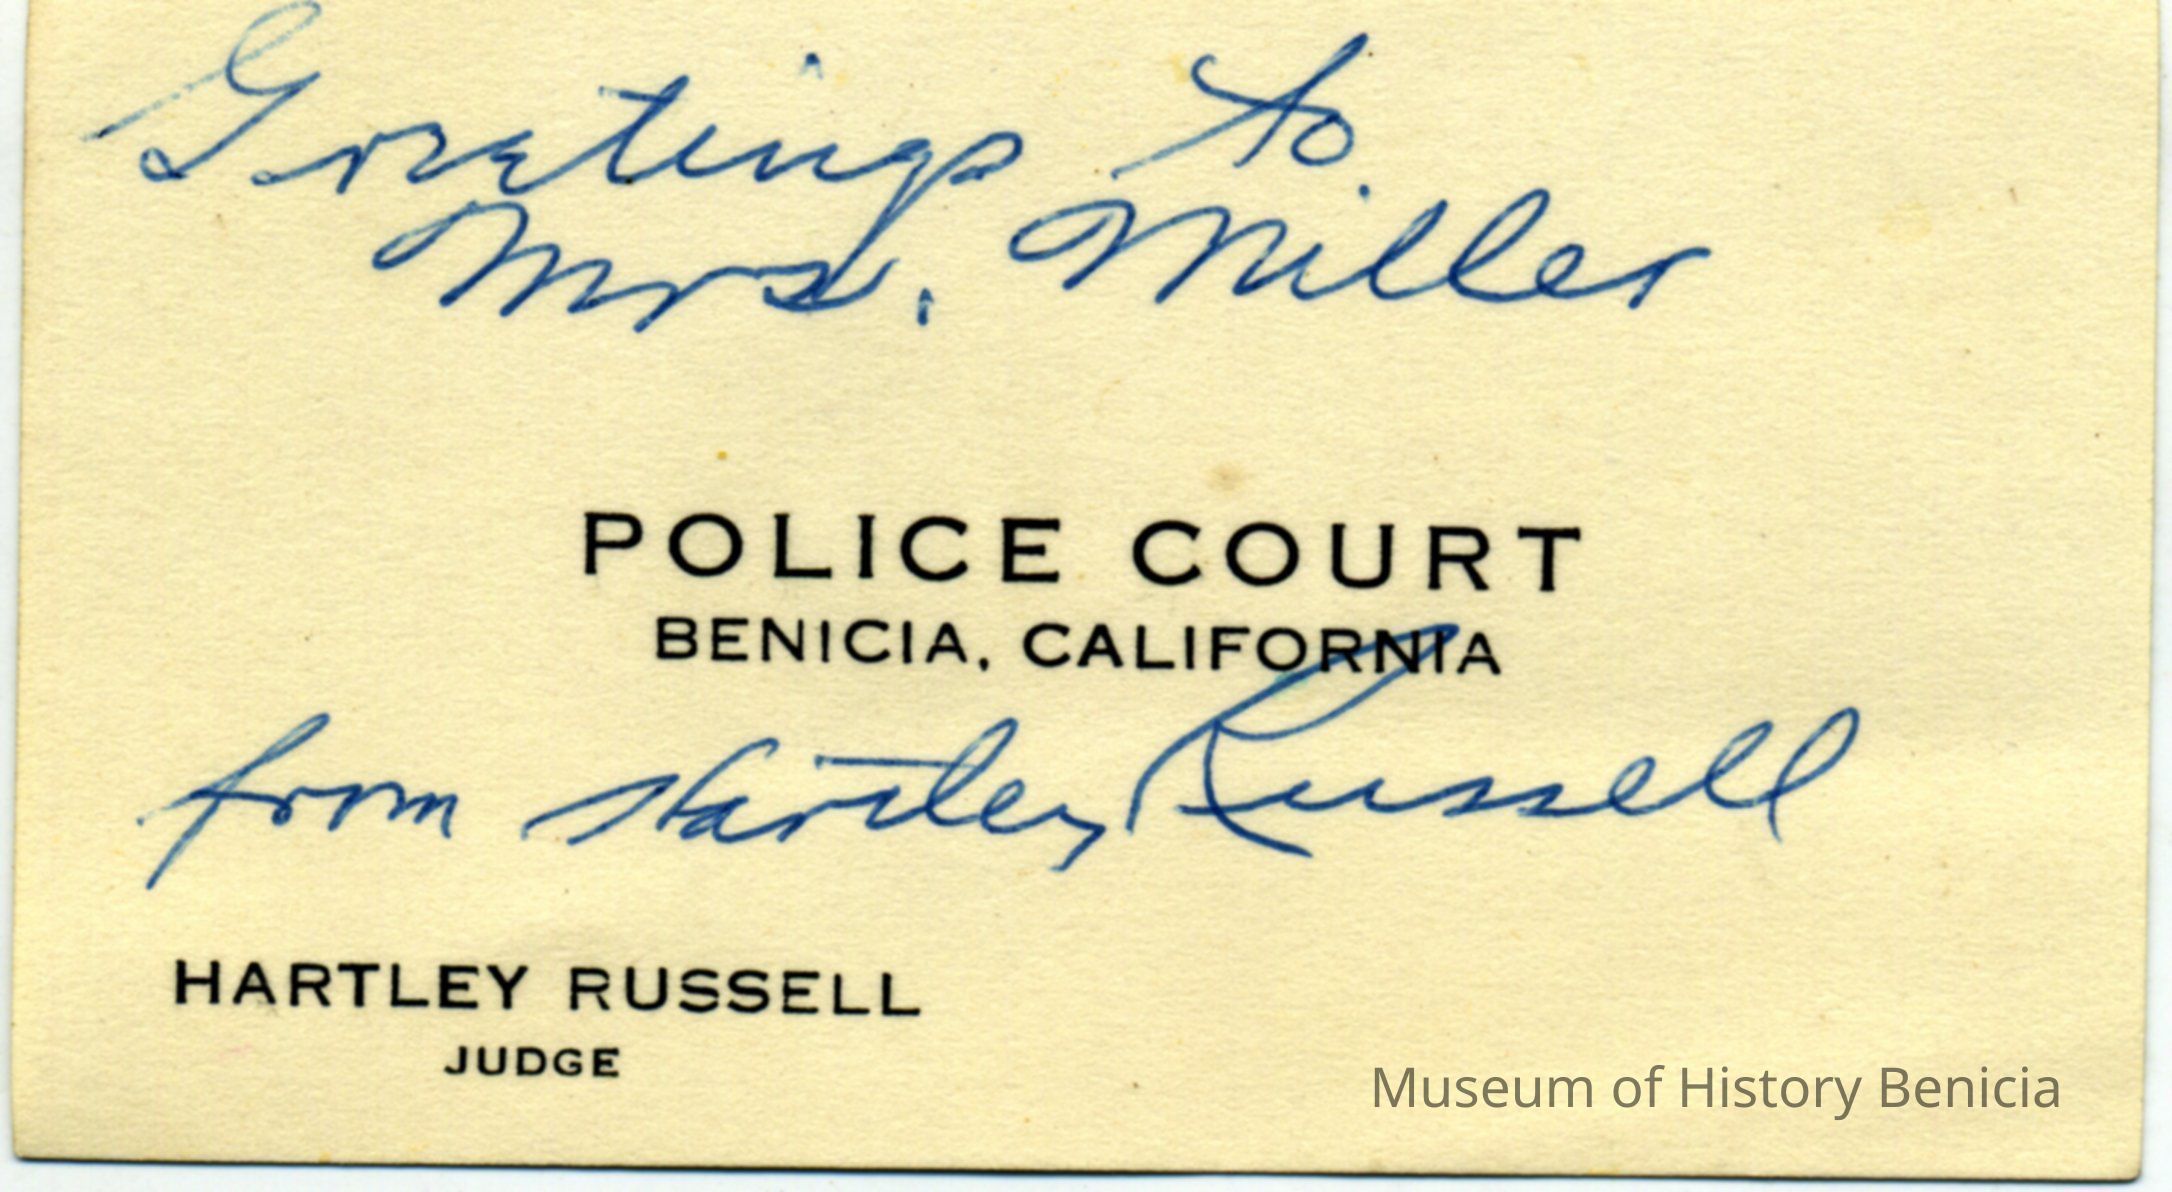 Greetings to
Mrs. Miller
POLICE COURT
BENICIA, CALIFORNIA
from Hartley Russell
HARTLEY RUSSELL
JUDGE
Museum of History Benicia